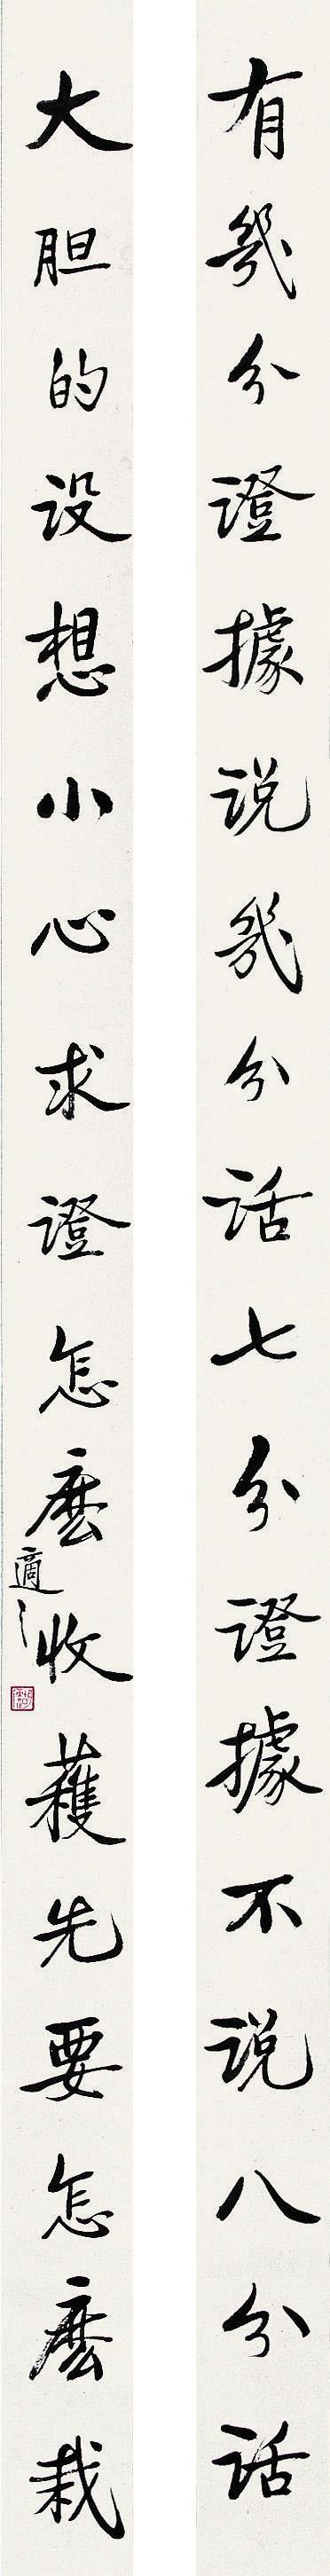 有幾分證據说幾分话七分證據不说八分话
大胆的设想小心求證怎麽收穫先要怎麽栽
適之